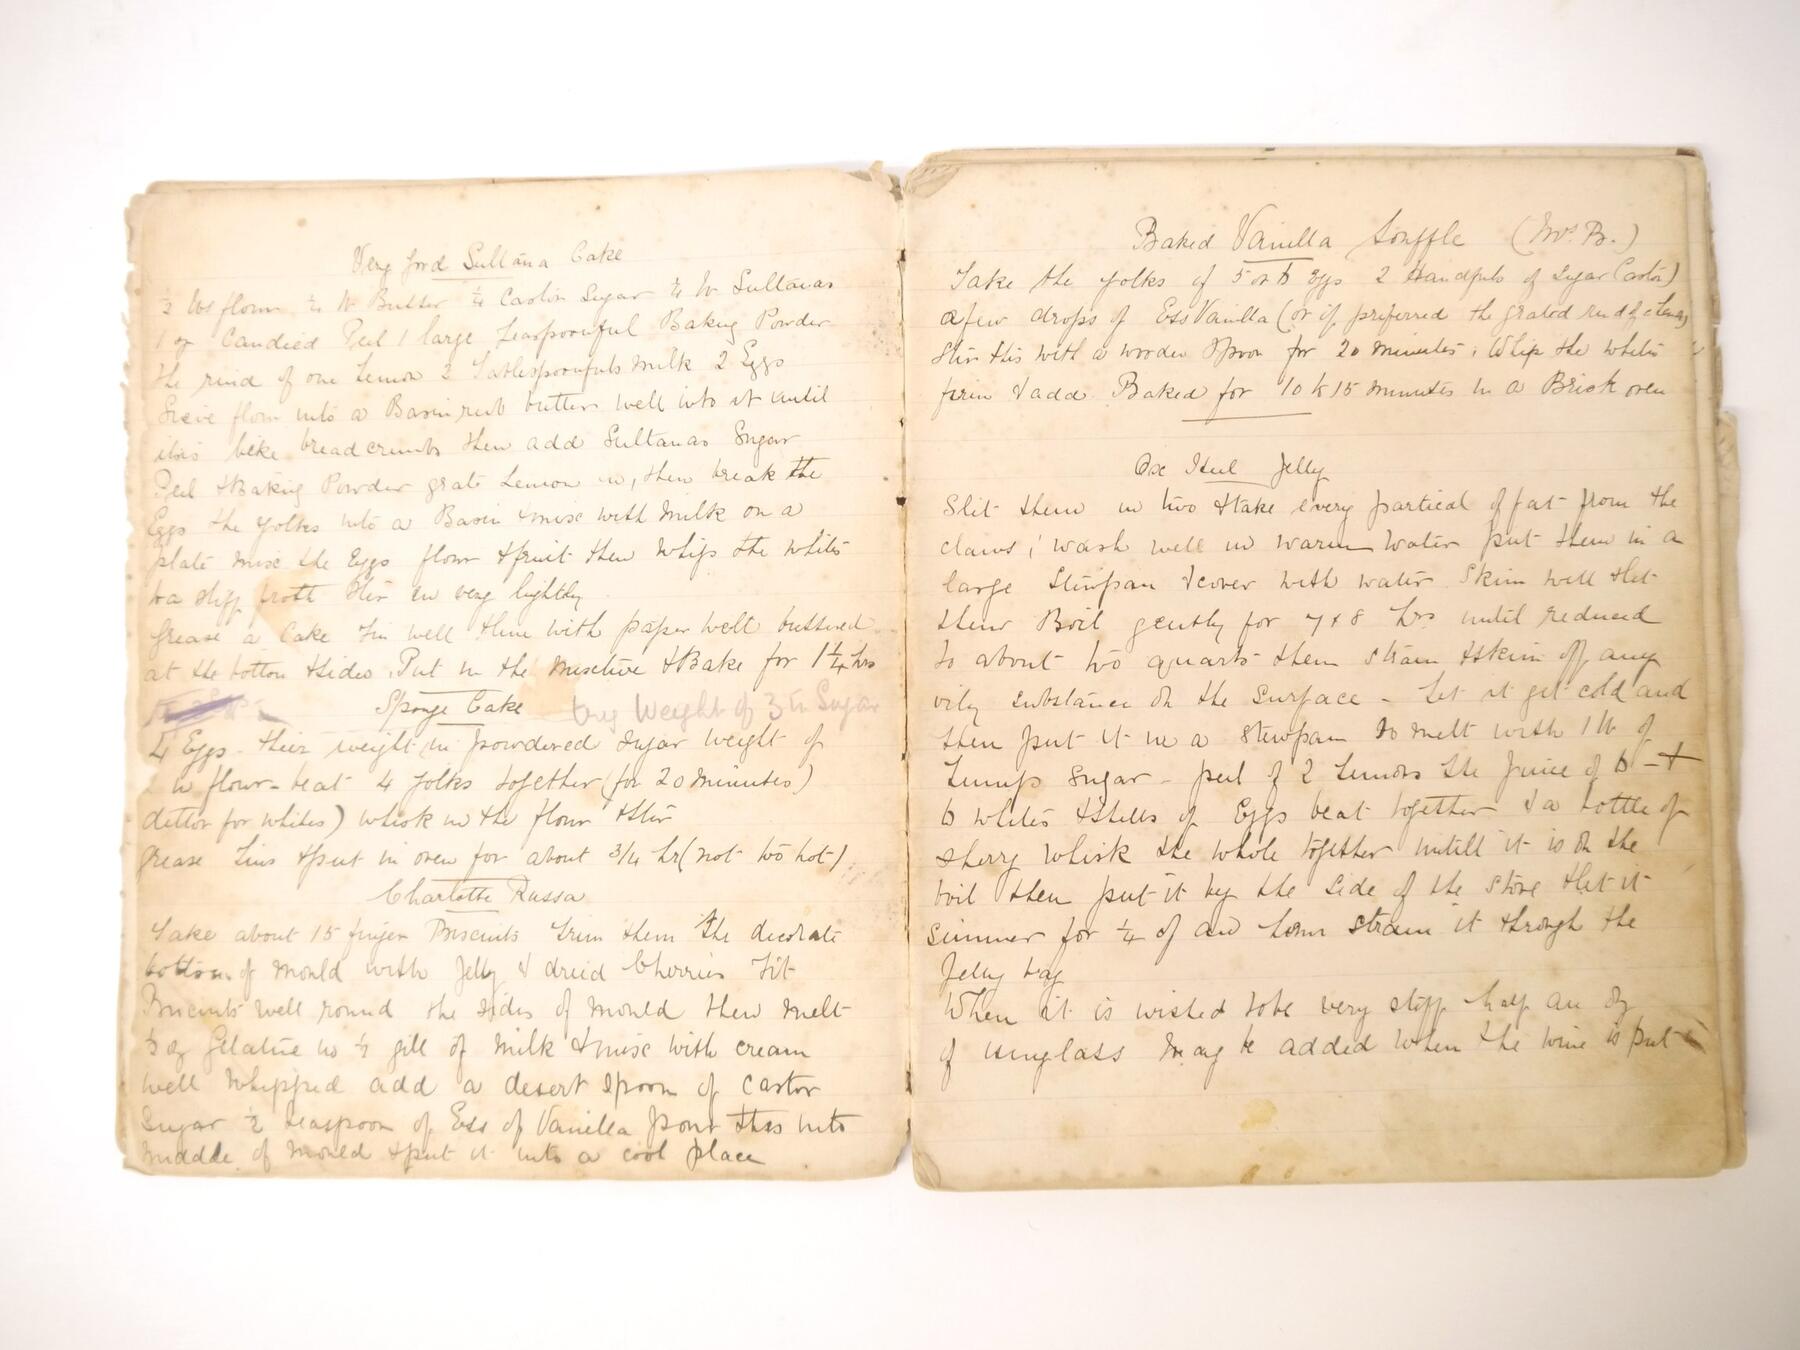 Very good Sultana Cake
½ lbs flour ¼ lb Butter ¼ Castor Sugar ¼ lb Sultanas
1 oz Candied Peel 1 large teaspoonful Baking Powder
the rind of one Lemon 2 Tablespoonfuls Milk 2 Eggs
Sieve flour into a Basin rub butter well into it until
its like breadcrumbs then add Sultanas Sugar
Peel & Baking Powder grate Lemon in, then break the
Eggs the yolks into a Basin & mix with Milk on a
plate mix the Eggs flour & fruit then Whip the whites
to a stiff froth Stir in very lightly
Grease a Cake Tin well & line with paper well buttered
at the bottom & sides. Put in the Mixture & Bake for 1¼ hrs
Sponge Cake only Weight of 3 in Sugar
4 Eggs. their weight in powdered sugar weight of
in flour - beat 4 yolks together (for 20 minutes)
dittor for whites) whisk in the flour & stir
grease Tins & put in oven for about 3/4 hr (not too hot)
Charlotte Russa
Take about 15 finger Biscuits trim them the decorate
bottom of mould with Jelly & dreid Cherries fit
Biscuits well round the sides of mould then melt
½ oz Gelatine in ½ gill of milk & mix with cream
well whipped add a desert spoon of castor
Sugar ½ teaspoon of Ess of Vanilla pour this into
middle of mould & put it into a cool place
Baked Vanilla Souffle (Mrs B.)
Take the yolks of 5 or 6 Eggs 2 Handfuls of Sugar (Castor)
a few drops of Ess Vanilla (or if preferred the grated rind of a Lemon)
Stir this with a wooden spoon for 20 minutes. Whip the whites
firm & add. Baked for 10 to 15 minutes in a Brick oven
Ox Heel Jelly
Slit them in two & take every partical of fat from the
claws, wash well in warm water put them in a
large Stewpan & cover with water. Skim well & let
them Boil gently for 7 & 8 hrs until reduced
to about two quarts them strain & skim off any
oily substance on the surface - Let it get cold and
then put it in a stewpan to melt with 1 lb of
Lump sugar - peel of 2 Lemons the juice of 6 - +
6 whites & shells of Eggs beat together & a bottle of
sherry Whisk the whole together untill it is on the
boil then put it by the side of the stove & let it
simmer for ¼ of an hour strain it through the
Jelly bag
When it is wished to be very stiff half an oz
of isinglass may be added when the wine is put